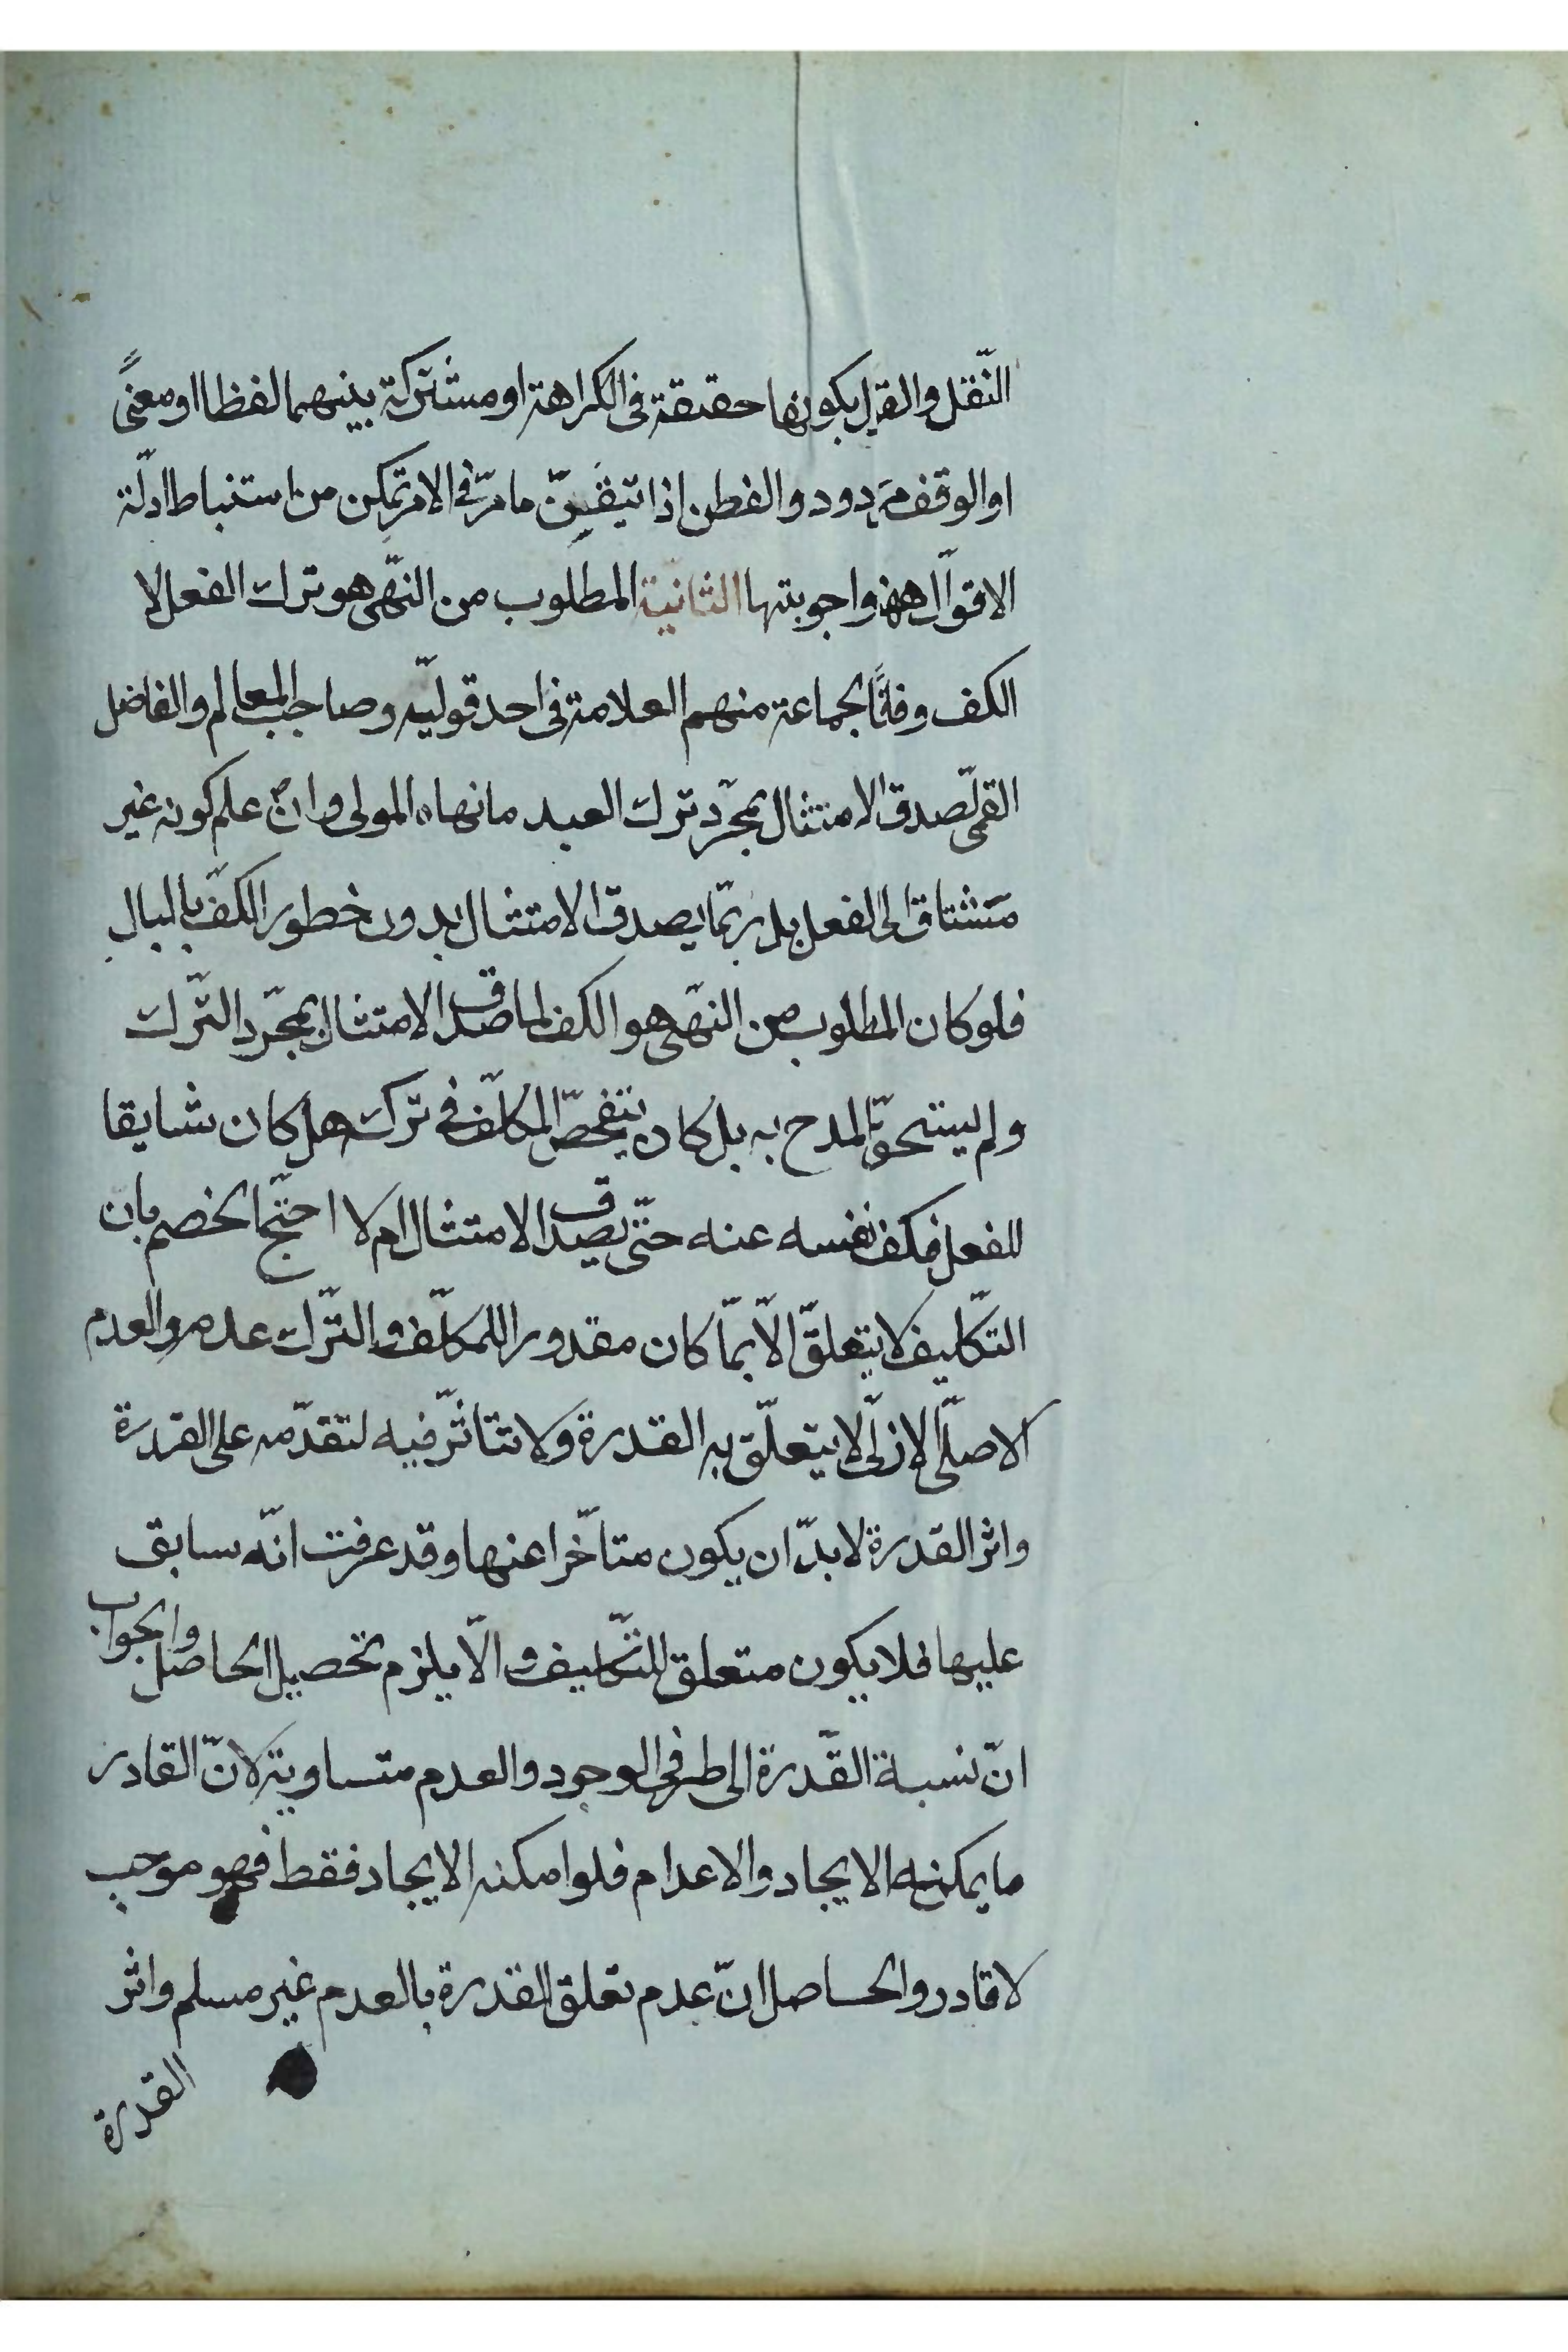 النّقل والقول بكونها حقيقة فى الكراهة او مشتركة بينهما لفظا او معنىً
او الوقف مردود والفطن اذا تيقّن ما مرّ فى الامر تمكن من استنباط ادلّة
الاقوال ههنا واجوبتها الثانية المطلوب من النّهى هو ترك الفعل لا
الكف وفاقًا لجماعة منهم العلامة فى احد قوليه وصاحب المعالم والفاضل
القمى لصدق الامتثال بمجرّد ترك العبد ما نهاه المولى وان علم كونه غير
مشتاق الى الفعل بل ربّما يصدق الامتثال بدون خطور الكفّ بالبال
فلو كان المطلوب من النّهى هو الكف لما صدق الامتثال بمجرّد التّرك
ولم يستحقّ المدح به بل كان يتفحّص المكلّف فى ترك هل كان شايقا
للفعل فكف نفسه عنه حتّى يصدق الامتثال ام لا احتجّ الخصم بان
التكّليف لا يتعلّق الّا بمّا كان مقدورا للمكلّف والتّرك عدم والعدم
الاصلّى الازلّى لا يتعلّق به القدرة ولا تتاثّر فيه لتقدّمه على القدرة
واثر القدرة لا بدّ ان يكون متاخّرا عنها وقد عرفت انّه سابق
عليها فلا يكون متعلق للتّكليف والّا يلزم تحصيل الحاصل والجواب
انّ نسبة القّدرة الى طرفى الوجود والعدم متساوية لانّ القادر
ما يمكنه الايجاد والاعدام فلو امكنه الايجاد فقط فهو موجب
لا قادر والحاصل انّ عدم تعلق القدرة بالعدم غير مسلم واثر
القدرة